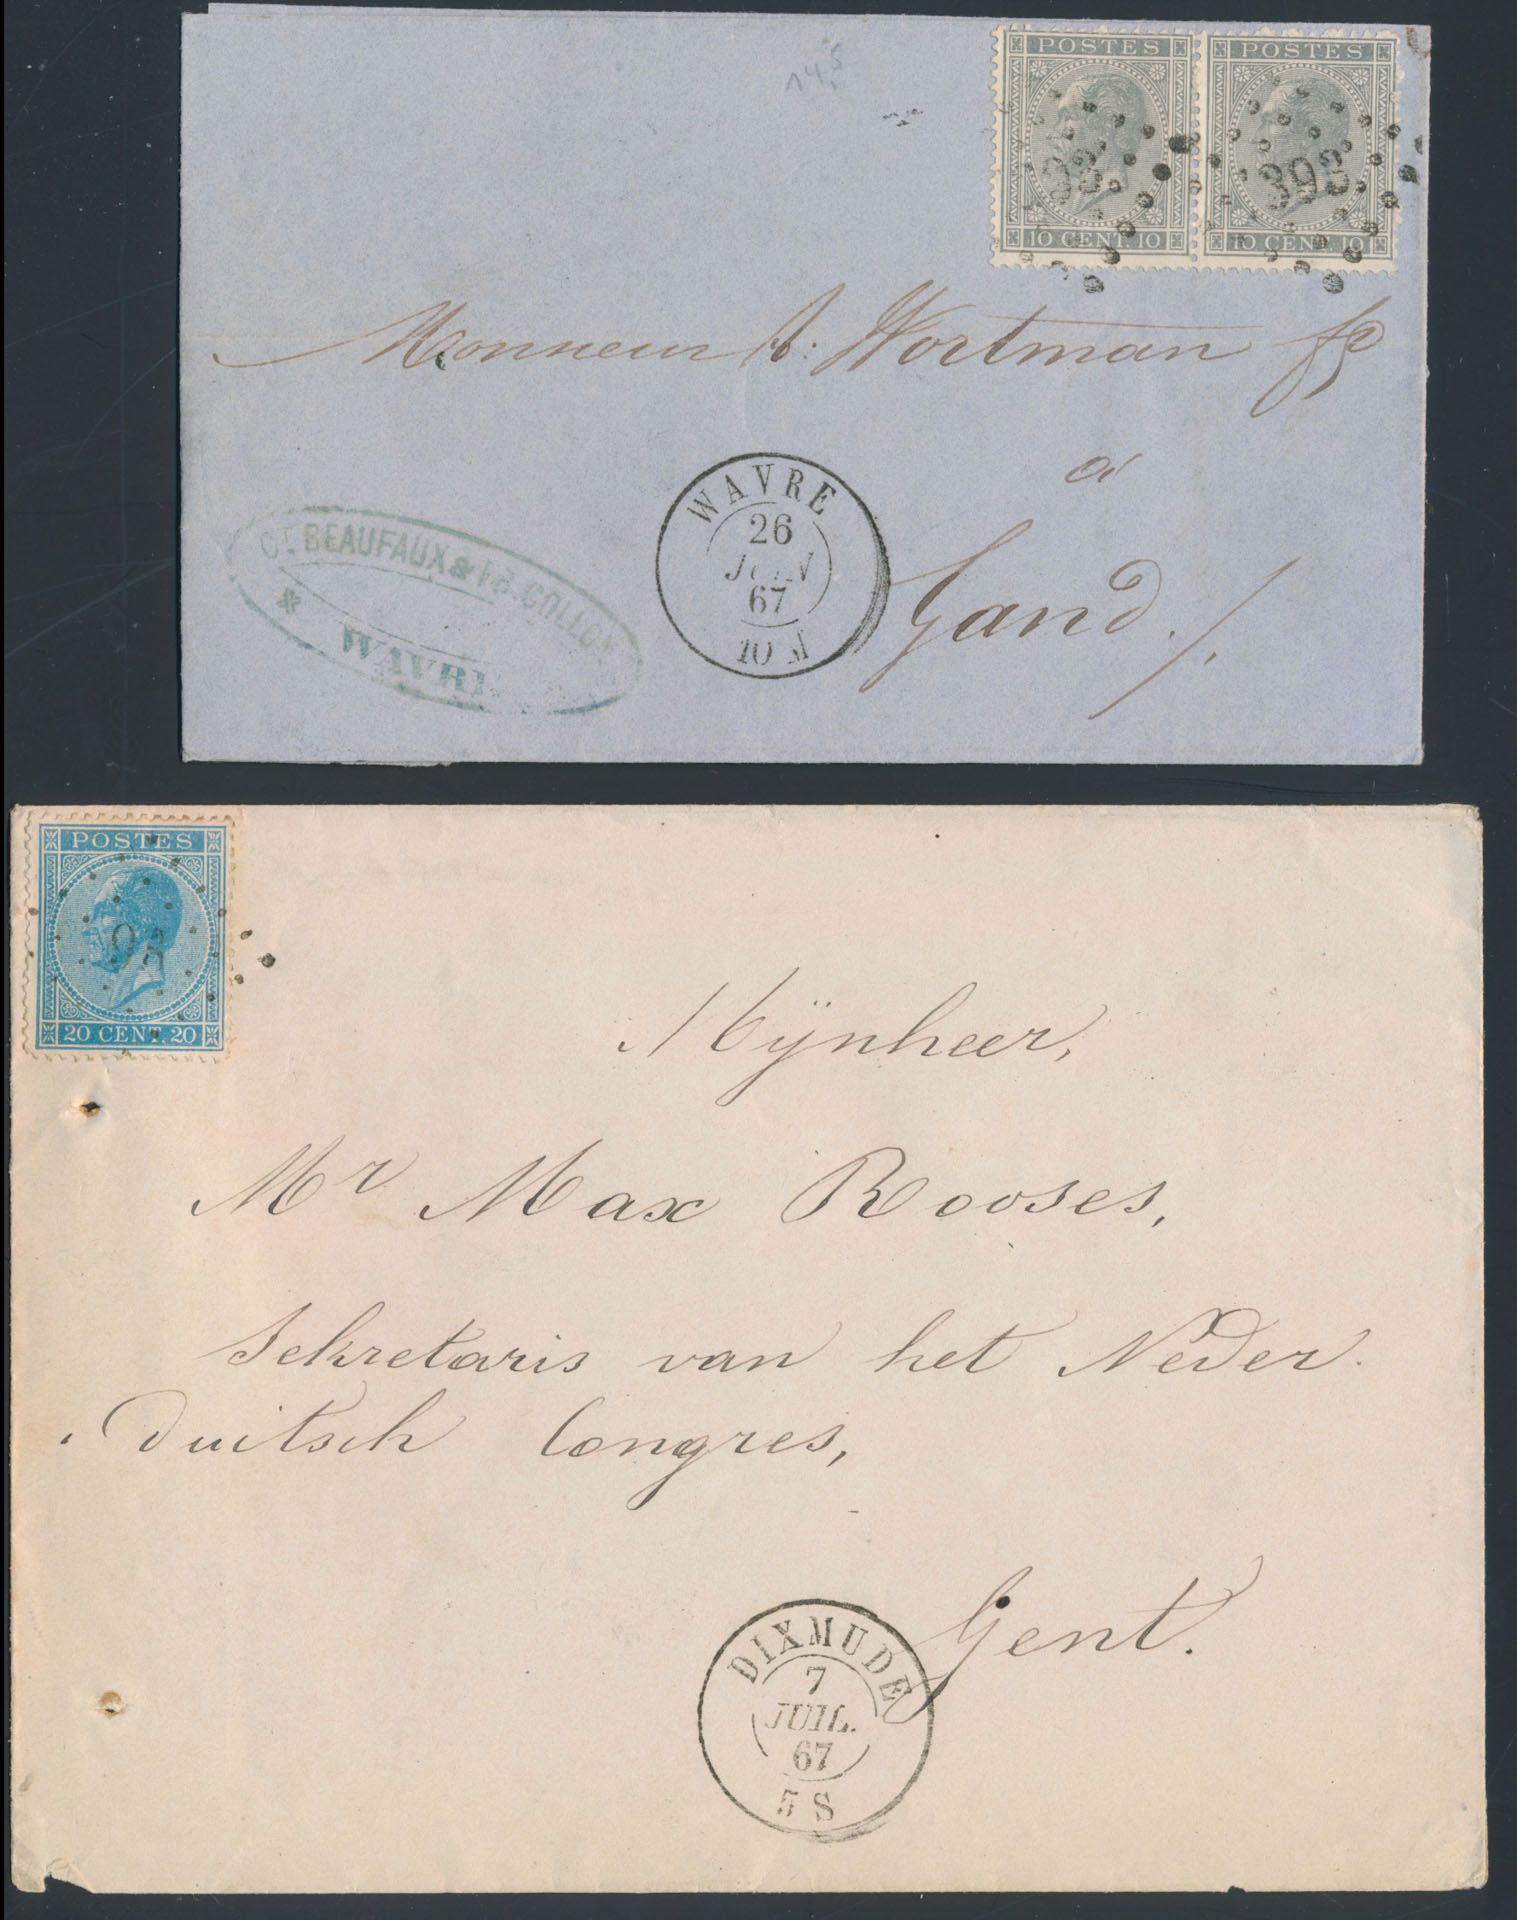 14,5
POSTES POSTES
393
10 CENT. 10 10 CENT. 10
Monsieur A: Wortman fs
à
Gand./
WAVRE
26
JUIN
67
10 M
BEAUFAUX &
WAVRE
POSTES
98
20 CENT. 20
Mijnheer,
Mr Max Rooses,
Sekretaris van het Neder
duitsch Congres,
Gent.
DIXMUDE
7
JUIL.
67
5 S